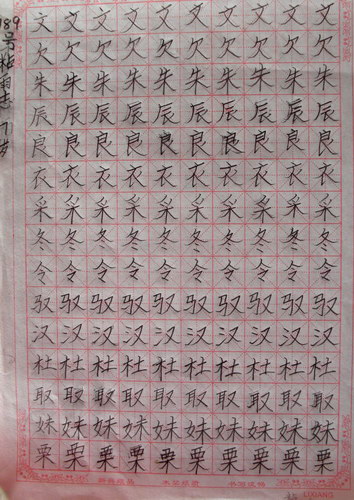 189号 7岁
文文文文文文文文文文
欠欠欠欠欠欠欠欠欠欠
朱朱朱朱朱朱朱朱朱朱
辰辰辰辰辰辰辰辰辰辰
良良良良良良良良良良
衣衣衣衣衣衣衣衣衣衣
采采采采采采采采采采
冬冬冬冬冬冬冬冬冬冬
令令令令令令令令令令
驭驭驭驭驭驭驭驭驭驭
汉汉汉汉汉汉汉汉汉汉
杜杜杜杜杜杜杜杜杜杜
取取取取取取取取取取
妹妹妹妹妹妹妹妹妹妹
栗栗栗栗栗栗栗栗栗栗